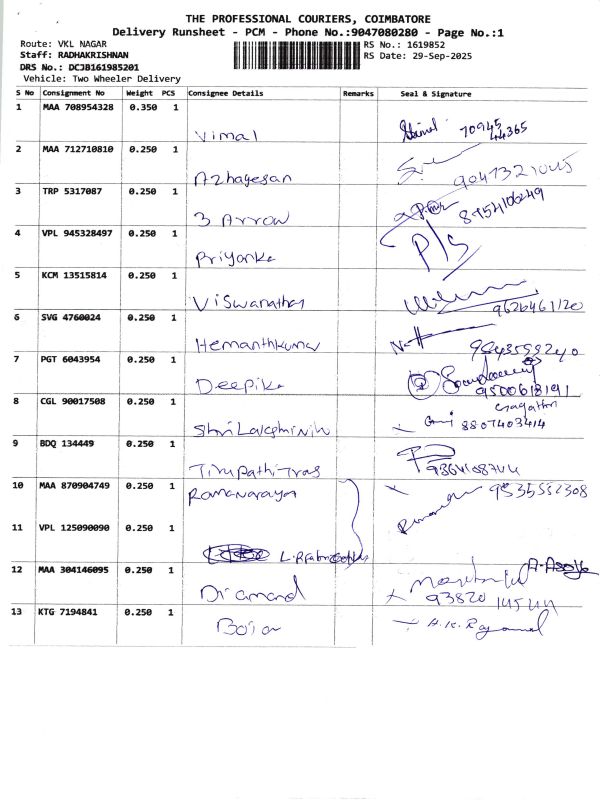 THE PROFESSIONAL COURIERS, COIMBATORE
Delivery Runsheet - PCM - Phone No.:9047080280 - Page No.:1
Route: VKL NAGAR
RS No.: 1619852
Staff: RADHAKRISHNAN
RS Date: 29-Sep-2025
DRS No.: DCJB161985201
Vehicle: Two Wheeler Delivery
S No Consignment No Weight PCS Consignee Details Remarks Seal & Signature
1 MAA 708954328 0.350 1 Vimal 70945 44365
2 MAA 712710810 0.250 1 Azhagesan
3 TRP 5317087 0.250 1 3 Arrow
4 VPL 945328497 0.250 1 Priyanka P/S
5 KCM 13515814 0.250 1 Viswanathan
6 SVG 4760024 0.250 1 Hemanthkumar
7 PGT 6043954 0.250 1 Deepika 9500618191
8 CGL 90017508 0.250 1 Gayathri 8807403414
9 BDQ 134449 0.250 1
10 MAA 870904749 0.250 1 Ramanarayan 9535552308
11 VPL 125090090 0.250 1
12 MAA 304146095 0.250 1 Diamand 93820
13 KTG 7194841 0.250 1